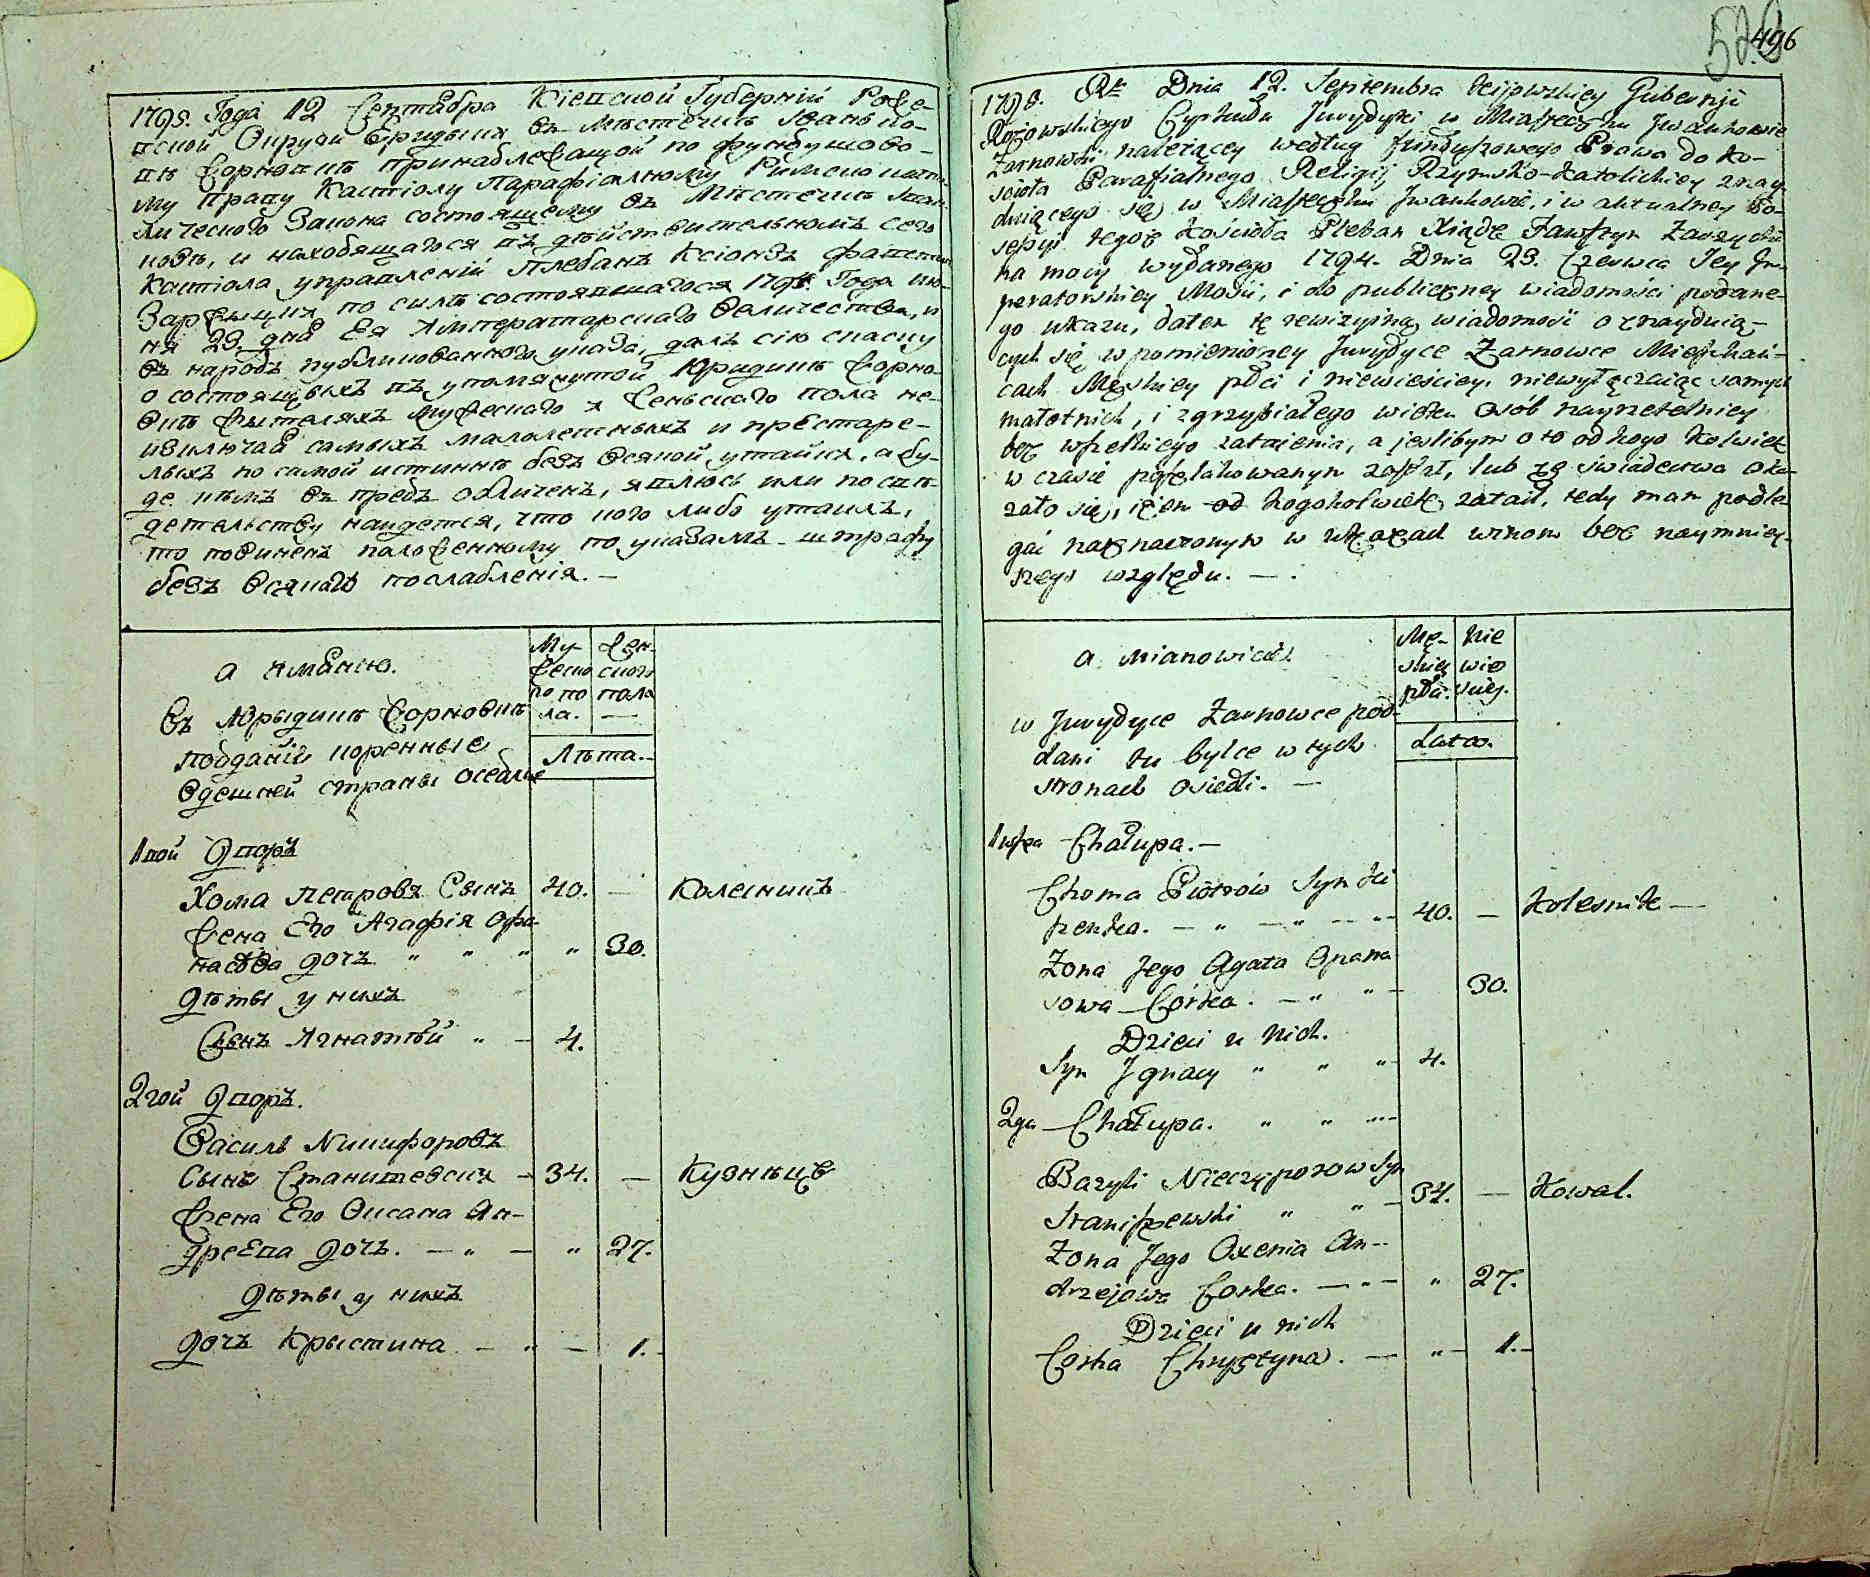 496
1795. Года 12 Сентабра Кіевской Губерніи Роже-
вской Округи Юридыки въ Мѣстечкѣ Иванько-
вѣ Жорновкѣ принадлежащой по фундушово-
му праву Костіолу Парафіалному Римско като-
лического Закона состоящему въ Мѣстечкѣ Иван-
ковѣ, и находящагося въ дѣйствительномъ сего
Костіола управленіи Плебанъ Ксіондзъ Фаустин
по силѣ состоявшагося 179 Года ию-
ня 23 дня Ея Императорскаго Величества, и
въ народъ публикованного указа, далъ сію сказку
о состоящыхъ въ упомянутой Юридикѣ Жорно-
вкѣ жытеляхъ мужеского и женского пола не-
изключай самыхъ малолетныхъ и престаре-
лыхъ по самой истиннѣ безъ всякой утайки, а бу-
де кѣмъ въ предъ обличенъ, явлюсь или по сви-
детельству найдется, что кого либо утаилъ,
то повиненъ положенному по указамъ штрафу
безъ всякого послабленія. —
а имянно.
Му-
жеско
го по
ла.
Жен-
ского
пола
—
Въ Юрыдикѣ Жорновкѣ
подданіи коренные
Здешней страны оседлые
Лѣта.
1вой Дворъ
Хома Петровъ Сынъ 40. — Колесникъ
Жена Его Агафія Афа-
насова дочъ " " " " 30.
дѣты у нихъ
Сынъ Игнатій " — 4.
2гой Дворъ.
Василь Никифоровъ
Сынъ Станишевскій — 34. — Кузнѣцъ
Жена Его Оксана Ан-
дреева дочъ. — " — " 27.
Дѣты у нихъ
Дочъ Крыстина — " — 1.-
1795. Rku Dnia 12. Septembra Kijowskiey Gubernji
Rożowskiego Cyrkułu Jurydyki w Miasteczku Jwankowie
Żarnowki należącey według funduszowego Prawa do Ko-
scioła Parafialnego Religij Rzymsko-Katolickiey znay-
duiącego się w Miasteczku Jwankowie, i w aktualney Po-
sessyi tegoż Kościoła Pleban Xiądz Faustyn
na mocy wydanego 1794. Dnia 23. Czerwca Jey Jm-
peratorskiey Mości, i do publiczney wiadomości podane-
go ukazu, dałem tę rewizyiną wiadomość o znayduią-
cych się wpomienioney Jurydyce Żarnowce Mieszkań-
cach Męskiey płci i niewieściey, niewyłączaiąc samych
małotnich, i zgrzybiałego wieku osób nayrzetelniey
bez wszelkiego zataienia, a jeslibym o to od kogo kolwiek
w czasie poszlakowanym został, lub ze świadectwa oka-
zało się, iżem od kogokolwiek zataił, tedy mam podle-
gać naznaczonym w ukazach winom bez naymniey-
szego względu. — .
a mianowicie
Mę-
skiey
płci.
Nie
wie
sciey.
w Jurydyce Żarnowce pod-
dani tu bylce w tych
stronach osiedli. —
Lata.
1wsza Chałupa. —
Choma Piotrów Syn
— " — " — " — 40. — Kolesnik —
Żona Jego Agata Apana
sowa Córka. — " " — 30.
Dzieci u nich.
Syn Jgnacy " " " 4.
2ga Chałupa. " " "
Bazyli Nieczyporow Syn
Staniszewski " " — 34. — Kowal.
Żona Jego Oxenia An-
drzejowa Corka. — " — " 27.
Dzieci u nich
Corka Chrystyna. — " — 1.-